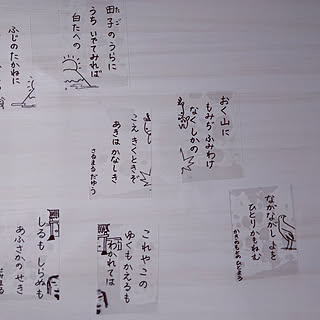 田子のうらに
うちいでてみれば
白たへの
ふじのたかねに
おく山に
もみぢふみわけ
なくしかの
こえきくときぞ
あきはかなしき
さるまるだゆう
ながながしよを
ひとりかもねむ
かきのもとのひとまろ
これやこの
ゆくもかえるも
わかれては
しるもしらぬも
あふさかのせき